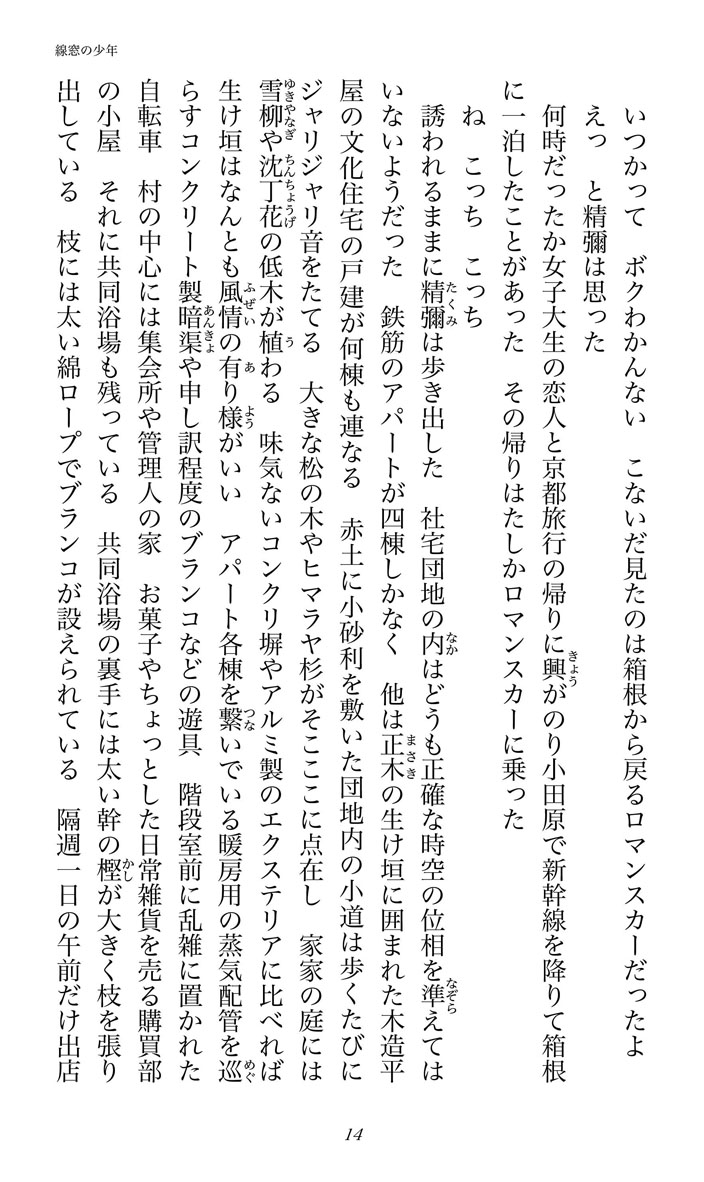 線窓の少年
いつかって　ボクわかんない　こないだ見たのは箱根から戻るロマンスカーだったよ
えっ　と精彌は思った
何時だったか女子大生の恋人と京都旅行の帰りに興がのり小田原で新幹線を降りて箱根
に一泊したことがあった　その帰りはたしかロマンスカーに乗った
ね　こっち　こっち
誘われるままに精彌は歩き出した　社宅団地の内はどうも正確な時空の位相を準えては
いないようだった　鉄筋のアパートが四棟しかなく　他は正木の生け垣に囲まれた木造平
屋の文化住宅の戸建が何棟も連なる　赤土に小砂利を敷いた団地内の小道は歩くたびに
ジャリジャリ音をたてる　大きな松の木やヒマラヤ杉がそこここに点在し　家家の庭には
雪柳や沈丁花の低木が植わる　味気ないコンクリ塀やアルミ製のエクステリアに比べれば
生け垣はなんとも風情の有り様がいい　アパート各棟を繋いでいる暖房用の蒸気配管を巡
らすコンクリート製暗渠や申し訳程度のブランコなどの遊具　階段室前に乱雑に置かれた
自転車　村の中心には集会所や管理人の家　お菓子やちょっとした日常雑貨を売る購買部
の小屋　それに共同浴場も残っている　共同浴場の裏手には太い幹の樫が大きく枝を張り
出している　枝には太い綿ロープでブランコが設えられている　隔週一日の午前だけ出店
14